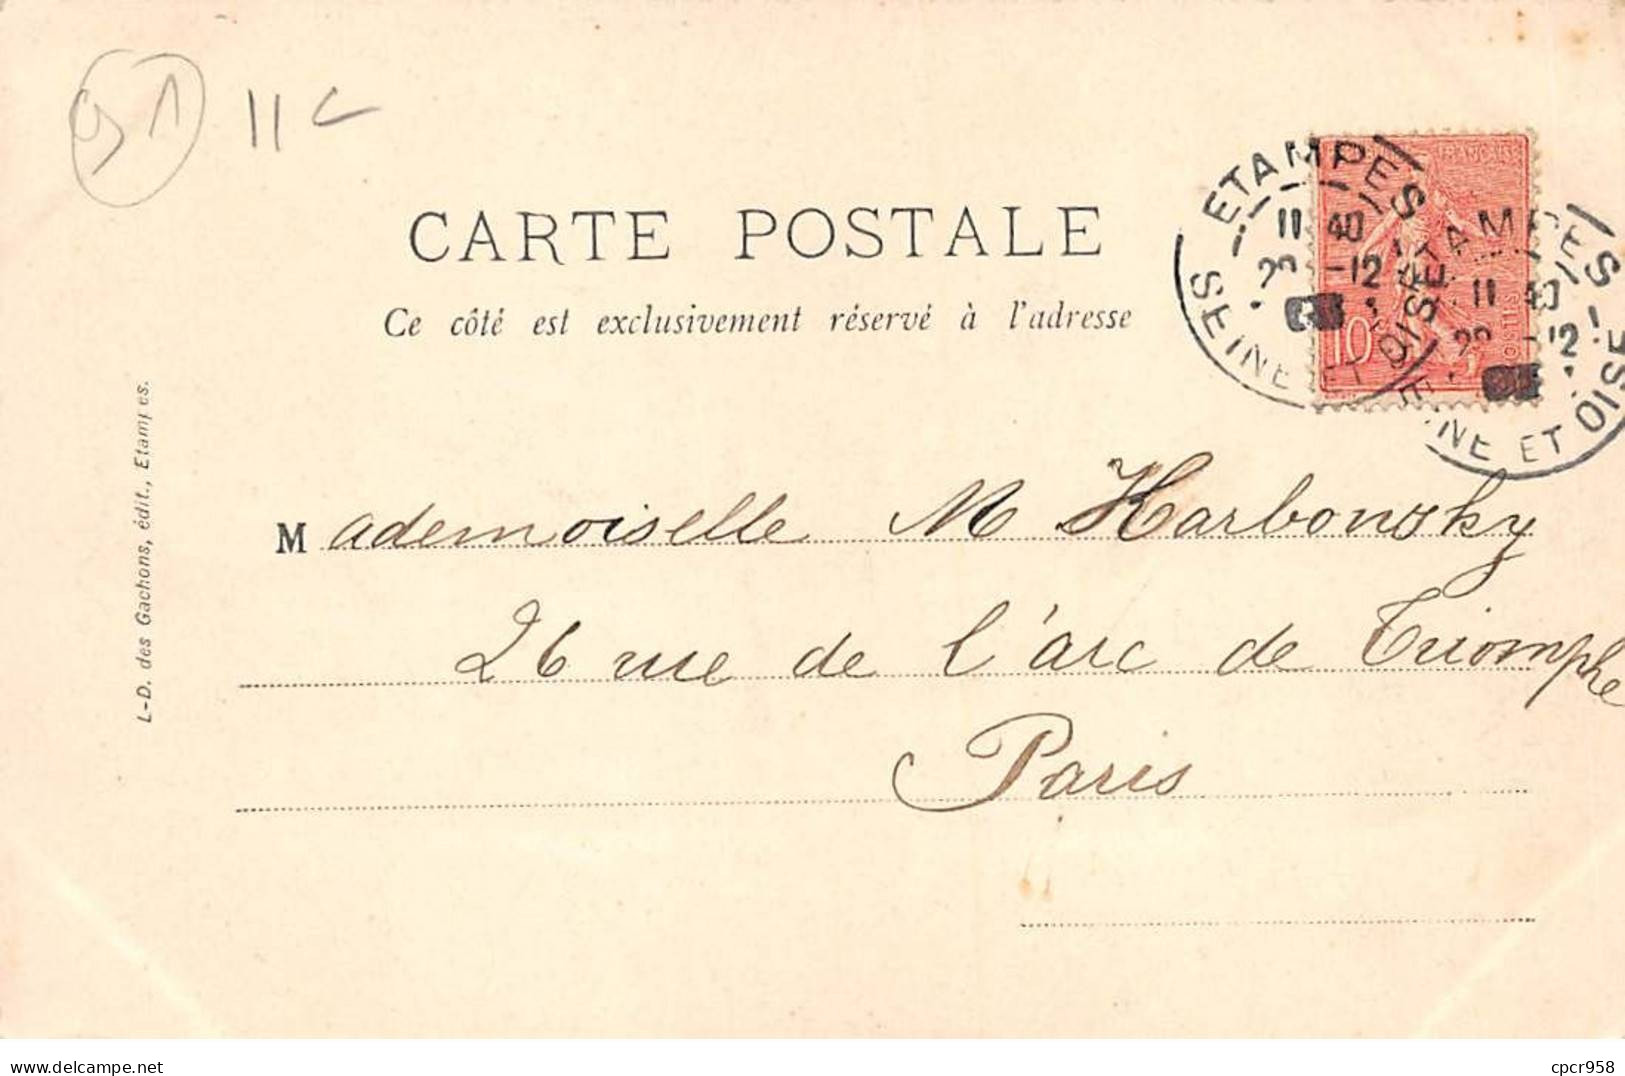 91 11c
CARTE POSTALE
Ce côté est exclusivement réservé à l'adresse
ETAMPES
11 40
-12
SEINE ET OISE
FRANÇAISE
10
POSTES
ETAMPES
11 40
-12
SEINE ET OISE
Mademoiselle M Harbonsky
26 rue de l'arc de Triomphe
Paris
L-D. des Gachons, édit., Etampes.
www.delcampe.net
cpcr958